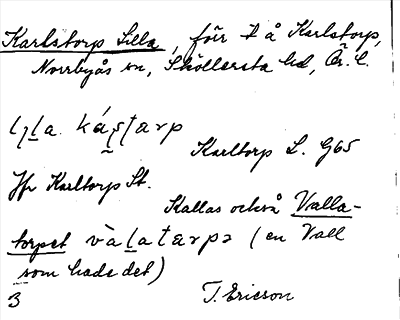 Karlstorp Lilla, förr t å Karlstorp,
Norrbyås sn, Sköllersta hd, Ör. l.
lı̣la káṣṭarp
Karltorp L. G65
Jfr Karltorp St.
Kallas också Valla-
torpet vàlatarpə (en Vall
som hade det)
3 T. Ericson